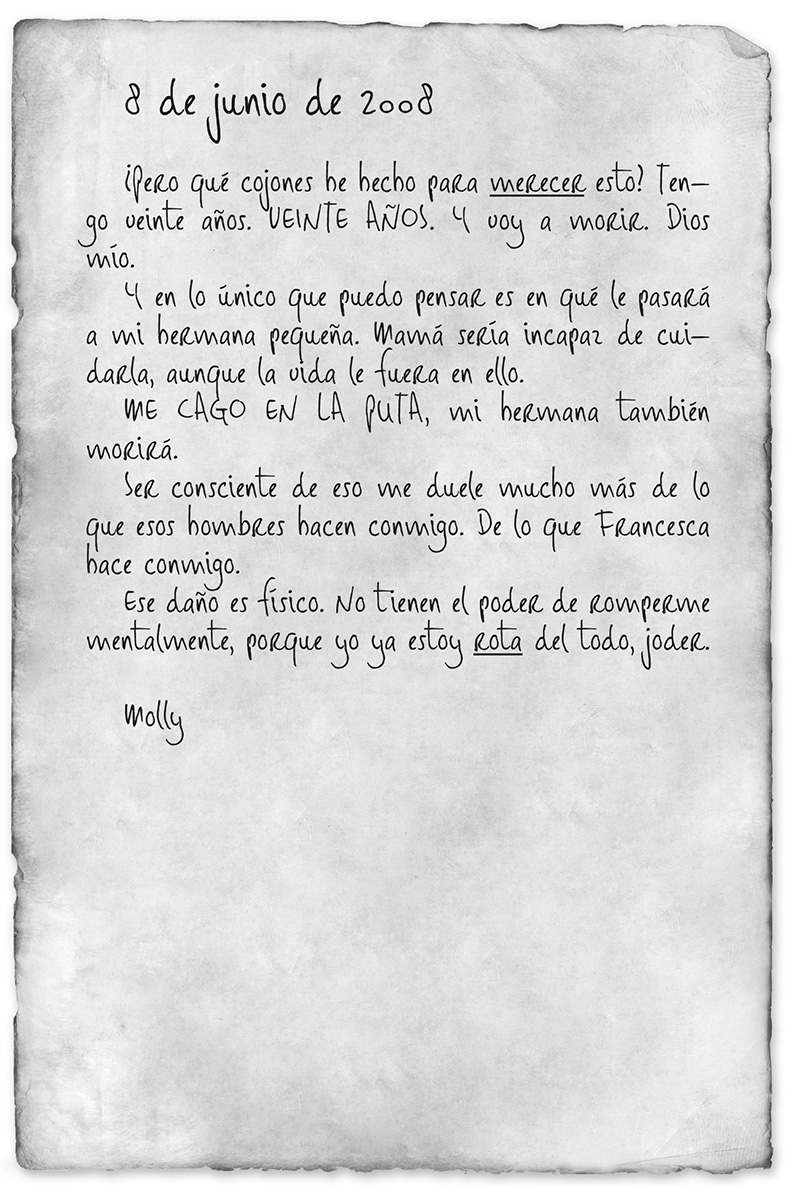 8 de junio de 2008
¡Pero qué cojones he hecho para merecer esto! Ten-
go veinte años. VEINTE AÑOS. Y voy a morir. Dios
mío.
Y en lo único que puedo pensar es en qué le pasará
a mi hermana pequeña. Mamá sería incapaz de cui-
darla, aunque la vida le fuera en ello.
ME CAGO EN LA PUTA, mi hermana también
morirá.
Ser consciente de eso me duele mucho más de lo
que esos hombres hacen conmigo. De lo que Francesca
hace conmigo.
Ese daño es físico. No tienen el poder de romperme
mentalmente, porque yo ya estoy rota del todo, joder.
Molly